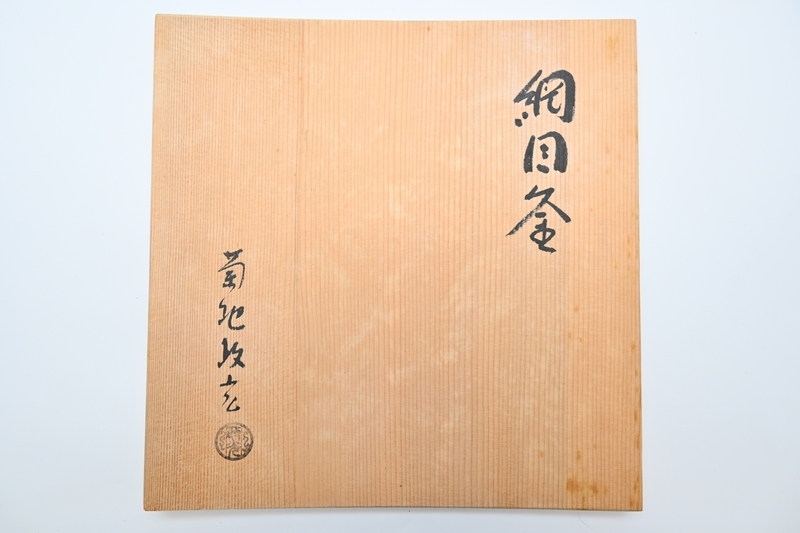 網目釜
菊地政光